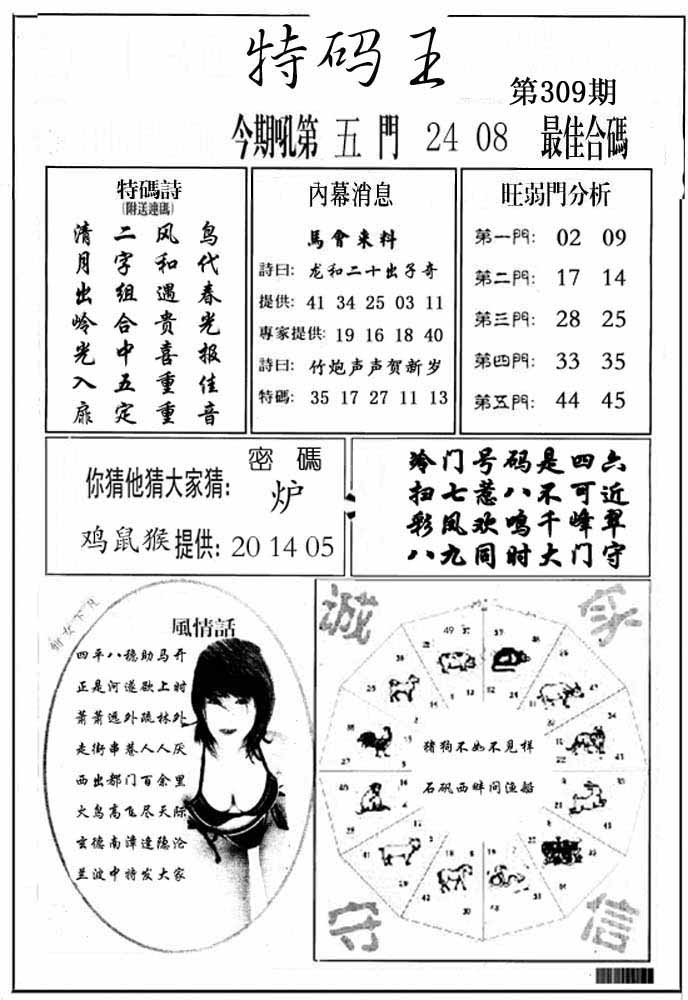 特码王
第309期
今期吼第 五門 24 08 最佳合碼
特碼詩
(附送連碼)
清月出岭光入扉
二字組合中五定
风和遇贵喜重重
鸟代春光报佳音
內幕消息
馬會來料
詩曰: 龙和二十出子奇
提供: 41 34 25 03 11
專家提供: 19 16 18 40
詩曰: 竹炮声声贺新岁
特碼: 35 17 27 11 13
旺弱門分析
第一門: 02 09
第二門: 17 14
第三門: 28 25
第四門: 33 35
第五門: 44 45
密碼
你猜他猜大家猜: 炉
鸡鼠猴提供: 20 14 05
冷门号码是四六
扫七惹八不可近
彩凤欢鸣千峰翠
八九同时大门守
仙女下凡
風情話
四平八稳助马开
正是河遂欲上时
萧萧远外疏林外
走街串巷人人厌
西出都门百余里
大鸟高飞尽天际
玄德南漳逢隐沦
兰波中特发大家
诚
家
猪狗不如不见样
石矾西畔问渔船
守
信